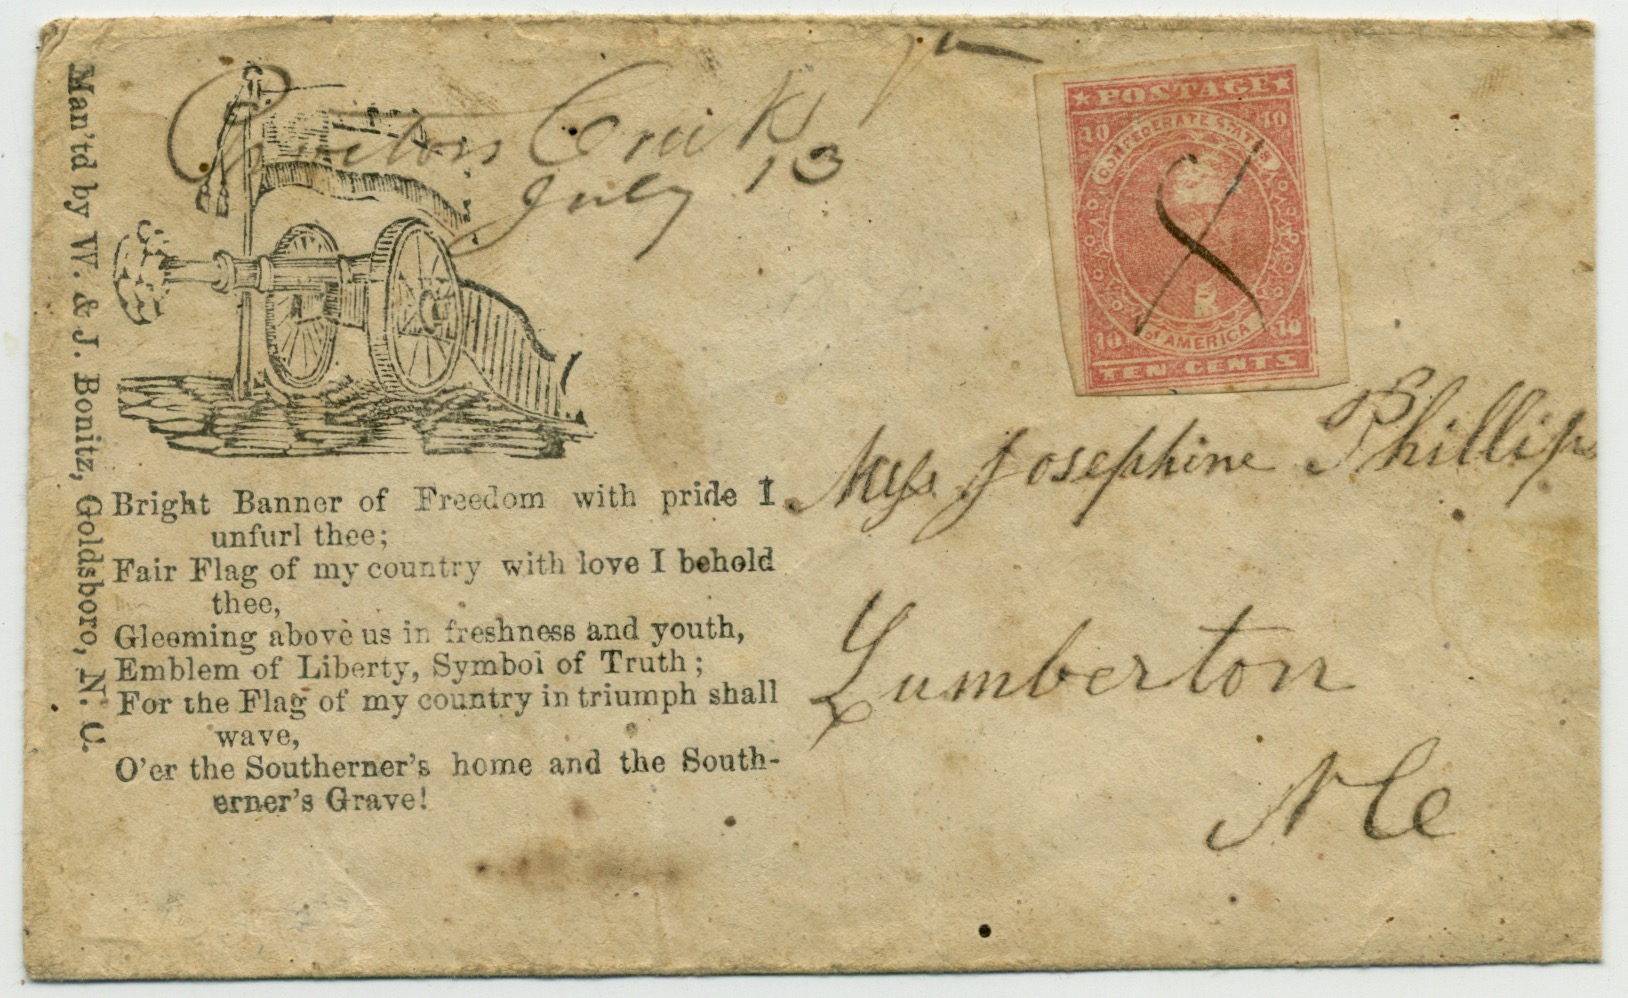 Man'td by W. & J. Bonitz, Goldsboro, N. C.
Creek Va
July 13
★POSTAGE★
10 10
CONFEDERATE STATES
of AMERICA
10 10
TEN CENTS
Bright Banner of Freedom with pride I
unfurl thee;
Fair Flag of my country with love I behold
thee,
Gleeming above us in freshness and youth,
Emblem of Liberty, Symbol of Truth;
For the Flag of my country in triumph shall
wave,
O'er the Southerner's home and the South-
erner's Grave!
Miss Josephine Phillips
Lumberton
N Ca